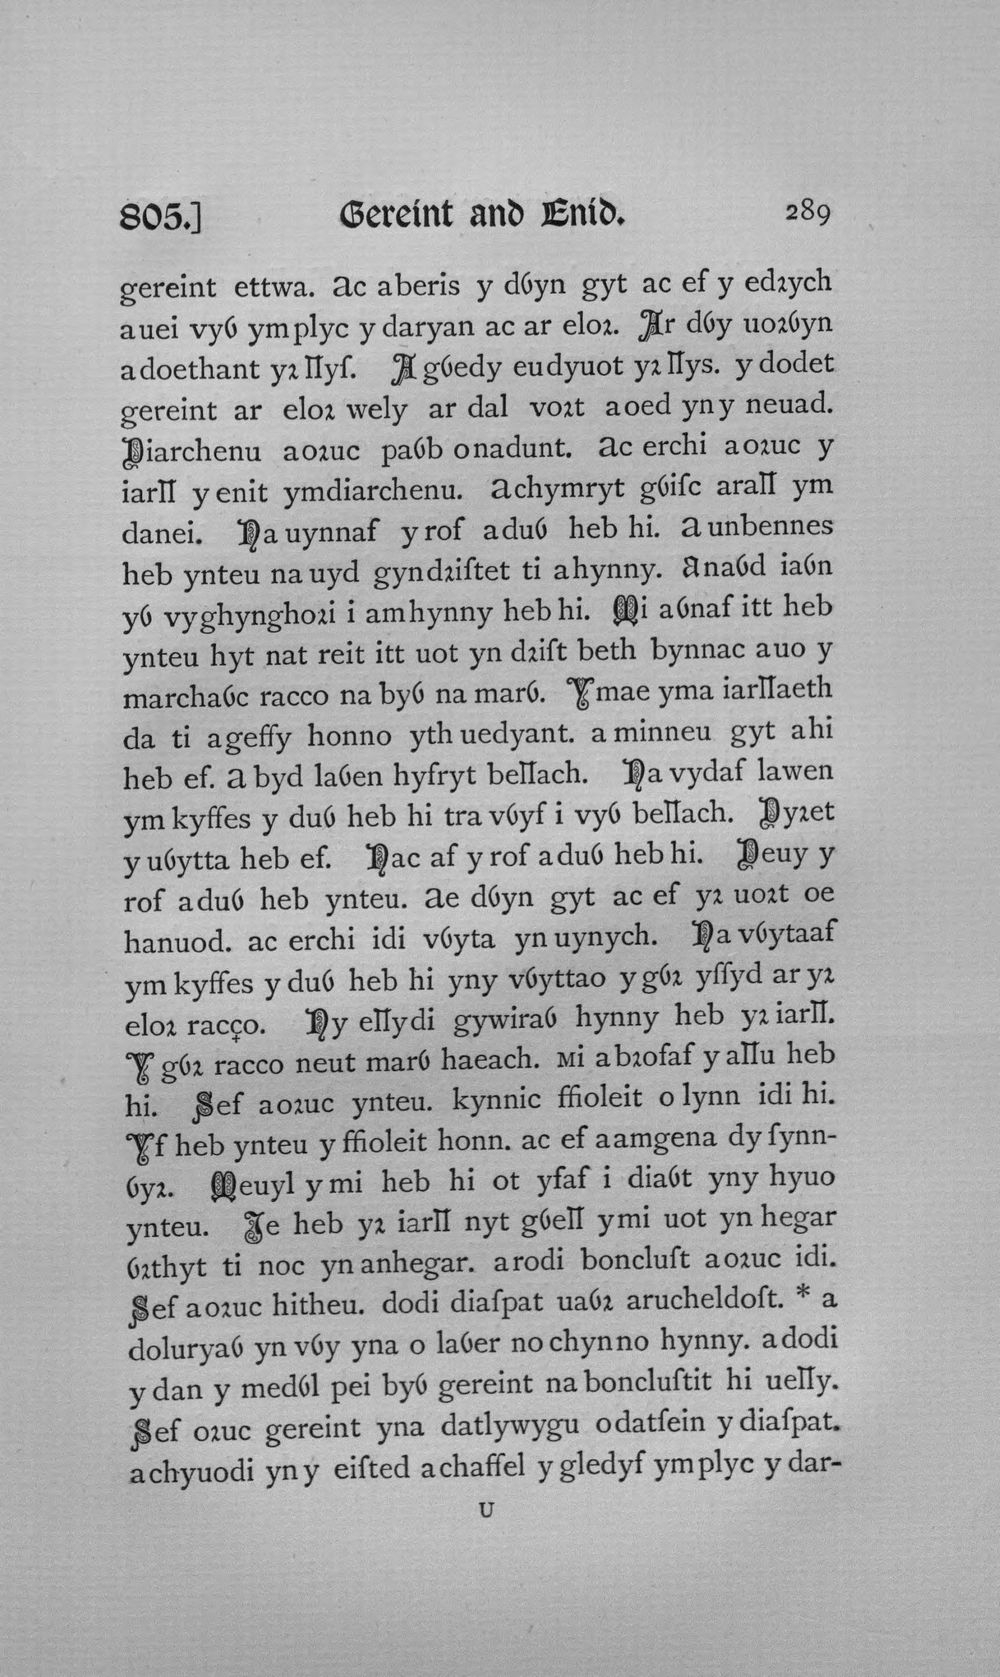 805.] Gereint and Enid. 289
gereint ettwa. Ac aberis y dỽyn gyt ac ef y edꝛych
auei vyỽ ymplyc y daryan ac ar eloꝛ. Ar dỽy uoꝛỽyn
adoethant yꝛ llyſ. A gỽedy eudyuot yꝛ llys. y dodet
gereint ar eloꝛ wely ar dal voꝛt aoed yny neuad.
Diarchenu aoꝛuc paỽb onadunt. Ac erchi aoꝛuc y
iarll y enit ymdiarchenu. Achymryt gỽiſc arall ym
danei. Na uynnaf y rof aduỽ heb hi. A unbennes
heb ynteu na uyd gyndꝛiſtet ti ahynny. Anaỽd iaỽn
yỽ vyghynghoꝛi i amhynny heb hi. Mi aỽnaf itt heb
ynteu hyt nat reit itt uot yn dꝛiſt beth bynnac auo y
marchaỽc racco na byỽ na marỽ. Ymae yma iarllaeth
da ti ageffy honno yth uedyant. a minneu gyt ahi
heb ef. A byd laỽen hyfryt bellach. Na vydaf lawen
ym kyffes y duỽ heb hi tra vỽyf i vyỽ bellach. Dyꝛet
y uỽytta heb ef. Nac af y rof aduỽ heb hi. Deuy y
rof aduỽ heb ynteu. Ae dỽyn gyt ac ef yꝛ uoꝛt oe
hanuod. ac erchi idi vỽyta yn uynych. Na vỽytaaf
ym kyffes y duỽ heb hi yny vỽyttao y gỽꝛ yſſyd ar yꝛ
eloꝛ racco. Ny elly di gywiraỽ hynny heb yꝛ iarll.
Y gỽꝛ racco neut marỽ haeach. Mi abꝛofaf y allu heb
hi. Sef aoꝛuc ynteu. kynnic ffioleit o lynn idi hi.
Yf heb ynteu y ffioleit honn. ac ef aamgena dy ſynn-
ỽyꝛ. Meuyl y mi heb hi ot yfaf i diaỽt yny hyuo
ynteu. Je heb yꝛ iarll nyt gỽell ymi uot yn hegar
ỽꝛthyt ti noc yn anhegar. arodi boncluſt aoꝛuc idi.
Sef aoꝛuc hitheu. dodi diaſpat uaỽꝛ arucheldoſt. * a
doluryaỽ yn vỽy yna o laỽer no chynno hynny. adodi
y dan y medỽl pei byỽ gereint na boncluſtit hi uelly.
Sef oꝛuc gereint yna datlywygu o datſein y diaſpat.
achyuodi yn y eiſted achaffel y gledyf ymplyc y dar-
U